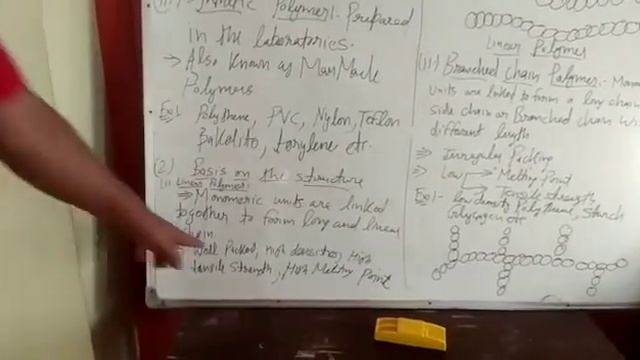 (iii) Synthetic Polymer:- Prepared
in the laboratories.
→ Also Known as Man Made
Polymers
Ex:- Polythene, PVC, Nylon, Teflon
Bakelite, terylene etc.
(2) Basis on the structure
(i) Linear Polymer:
⇒ Monomeric units are linked
together to form long and linear
chain
Well Packed, High densities, High
tensile strength, High Melting Point
Linear Polymer
(ii) Branched chain Polymer:- Mono
units are linked to form a long chain
side chain or Branched chain wi
different length
⇒ Irregularly Packing
⇒ Low → Melting Point
→ Tensile strength
Ex:- low density Polythene, Starch
Glycogen etc